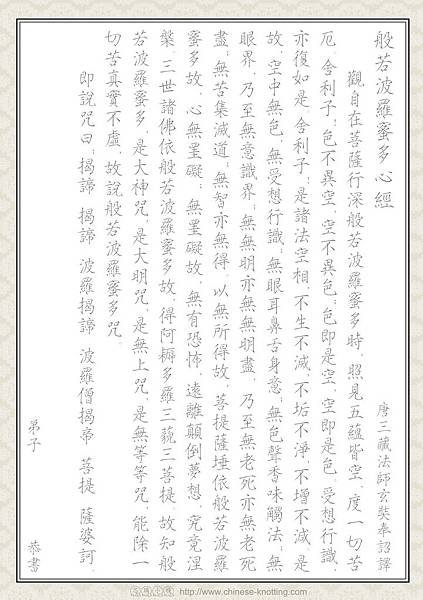 般若波羅蜜多心經
唐三藏法師玄奘奉詔譯
觀自在菩薩行深般若波羅蜜多時，照見五蘊皆空，度一切苦
厄。舍利子；色不異空，空不異色；色即是空，空即是色。受想行識，
亦復如是。舍利子；是諸法空相，不生不滅，不垢不淨，不增不減，是
故，空中無色，無受想行識；無眼耳鼻舌身意；無色聲香味觸法；無
眼界，乃至無意識界；無無明亦無無明盡，乃至無老死亦無老死
盡；無苦集滅道；無智亦無得。以無所得故，菩提薩埵依般若波羅
蜜多故，心無罣礙；無罣礙故，無有恐怖，遠離顛倒夢想，究竟涅
槃。三世諸佛依般若波羅蜜多故，得阿耨多羅三藐三菩提。故知般
若波羅蜜多，是大神咒，是大明咒，是無上咒，是無等等咒，能除一
切苦真實不虛。故說般若波羅蜜多咒。
即說咒曰；揭諦 揭諦 波羅揭諦 波羅僧揭帝 菩提 薩婆訶。
弟子 恭書
http://www.chinese-knotting.com